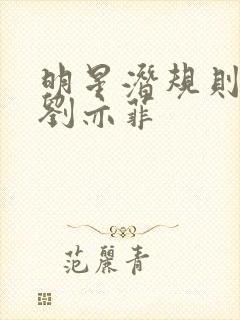 明星潜規則
劉亦菲
范麗青